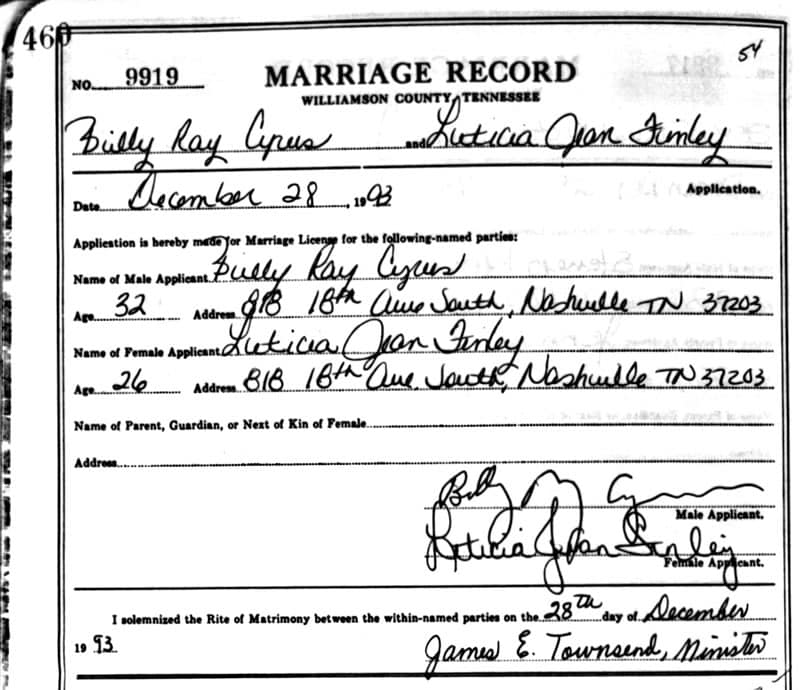 460
54
NO. 9919 MARRIAGE RECORD
WILLIAMSON COUNTY, TENNESSEE
Billy Ray Cyrus and Luticia Jean Finley
Date December 28, 1993 Application.
Application is hereby made for Marriage License for the following-named parties:
Name of Male Applicant Billy Ray Cyrus
Age 32 Address 818 18th Ave South, Nashville TN 37203
Name of Female Applicant Luticia Jean Finley
Age 26 Address 818 18th Ave. South, Nashville TN 37203
Name of Parent, Guardian, or Next of Kin of Female
Address
Billy Ray Cyrus
Male Applicant.
Leticia Jean Finley
Female Applicant.
I solemnized the Rite of Matrimony between the within-named parties on the 28th day of December
1993. James E. Townsend, Minister